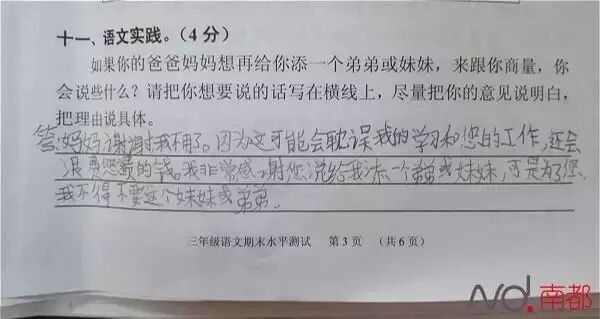 十一、语文实践。(4分)
如果你的爸爸妈妈想再给你添一个弟弟或妹妹，来跟你商量，你
会说些什么？请把你想要说的话写在横线上，尽量把你的意见说明白，
把理由说具体。
答：妈妈谢谢我不用了。因为这可能会耽误我的学习和您的工作，还会
浪费您的钱。我非常感谢您说给我添一个弟弟或妹妹，可是为了您、
我不得不要这个妹妹或弟弟。
三年级语文期末水平测试 第3页 （共6页）
Nd.南都